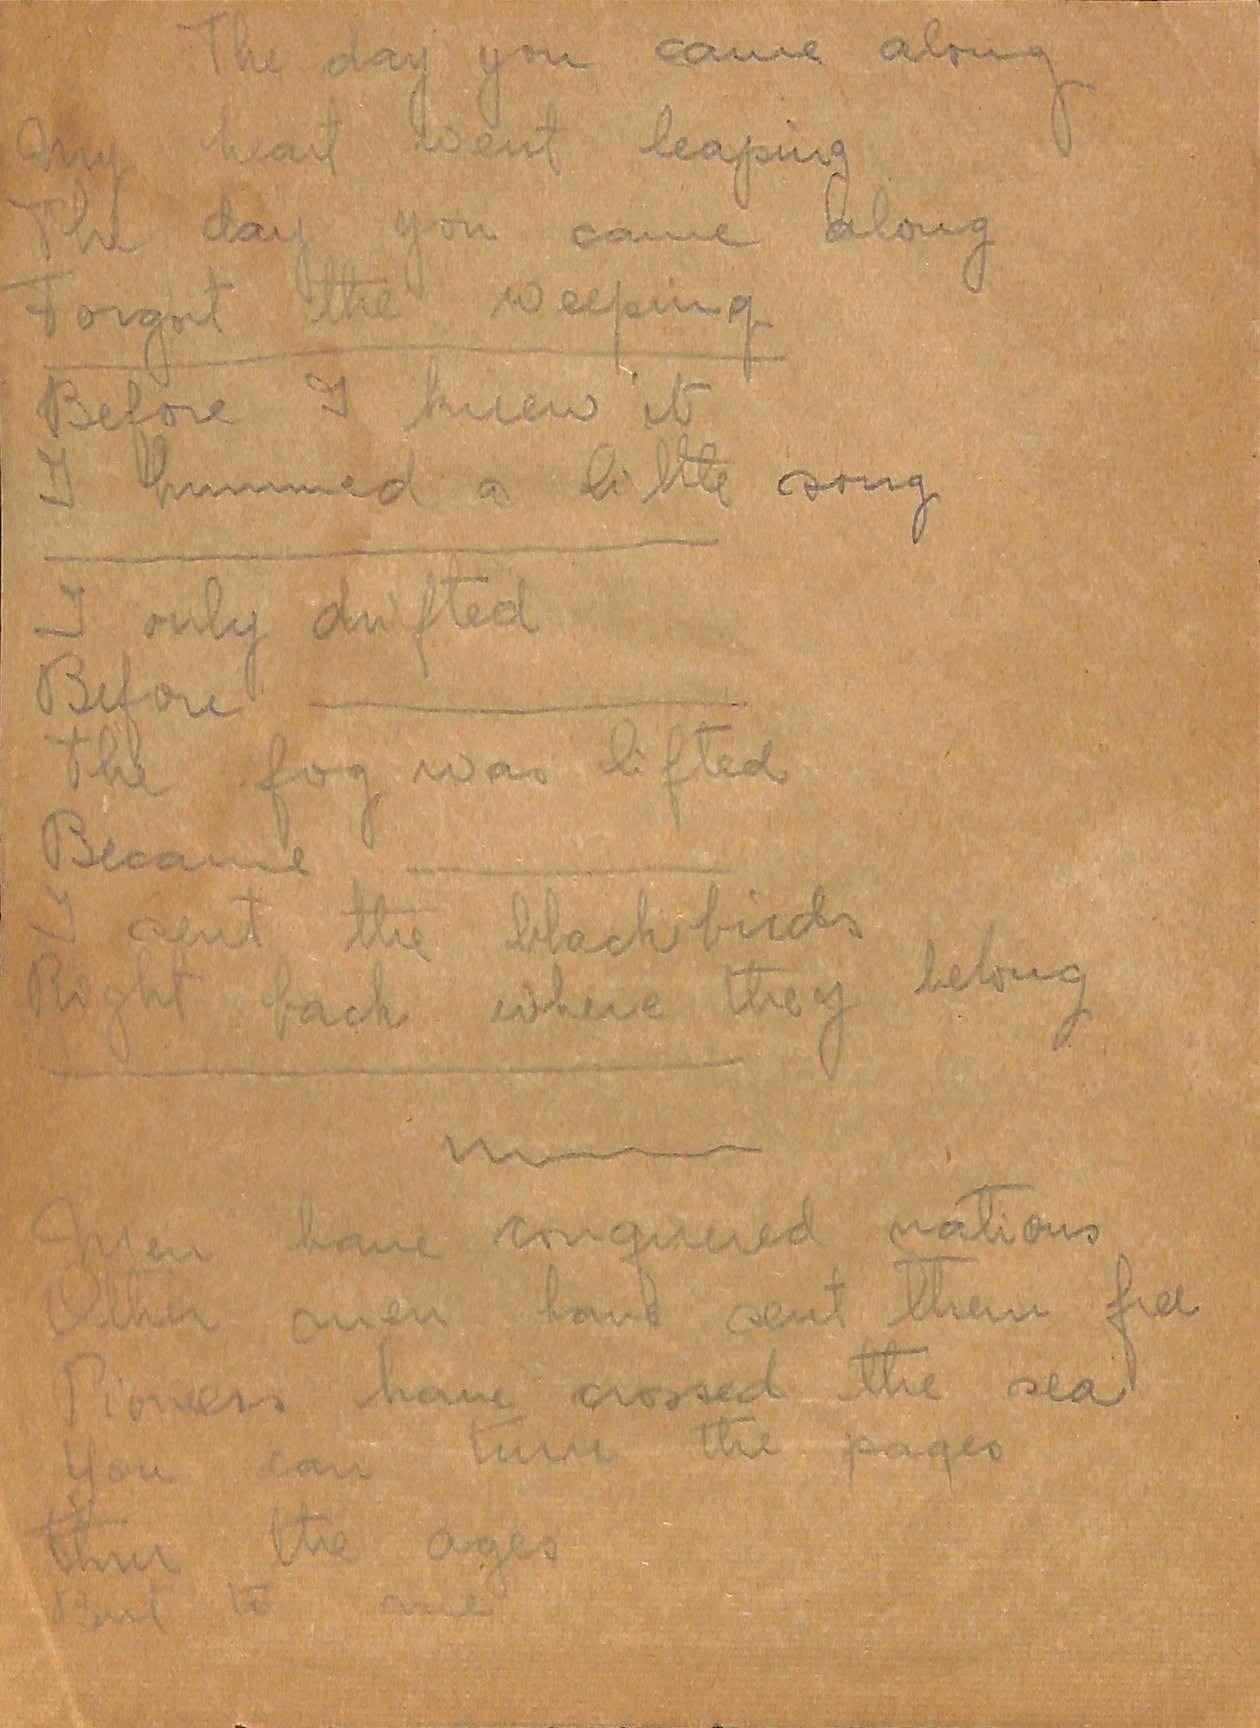 The day you came along
My heart went leaping
The day you came along
Forgot the weeping
Before I knew it
I hummed a little song
I only drifted
Before
The fog was lifted
Became
I sent the blackbirds
Right back where they belong
Men have conquered nations
Other men have sent them free
Pioneers have crossed the sea
You can turn the pages
thru the ages
But to me